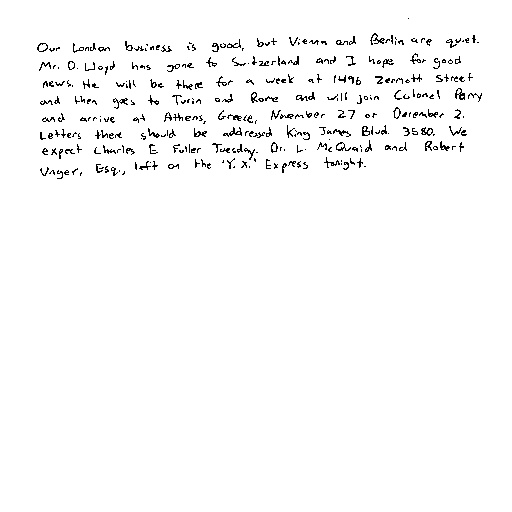 Our London business is good, but Vienna and Berlin are quiet.
Mr. D. Lloyd has gone to Switzerland and I hope for good
news. He will be there for a week at 1496 Zermott Street
and then goes to Turin and Rome and will join Colonel Parry
and arrive at Athens, Greece, November 27 or December 2.
Letters there should be addressed King James Blvd. 3580. We
expect Charles E. Fuller Tuesday. Dr. L. McQuaid and Robert
Unger, Esq., left on the "Y.X." Express tonight.